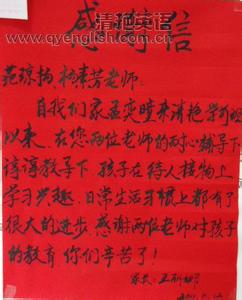 清艳英语
www.qyenglish.com.cn
感谢信
范琼梅、林素芳老师:
自我们家孟奕曈来清艳学习班
以来,在您两位老师的耐心辅导下
谆谆教导下,孩子在待人接物上
学习兴趣、日常生活习惯上都有了
很大的进步,感谢两位老师对孩子
的教育,你们辛苦了!
家长: